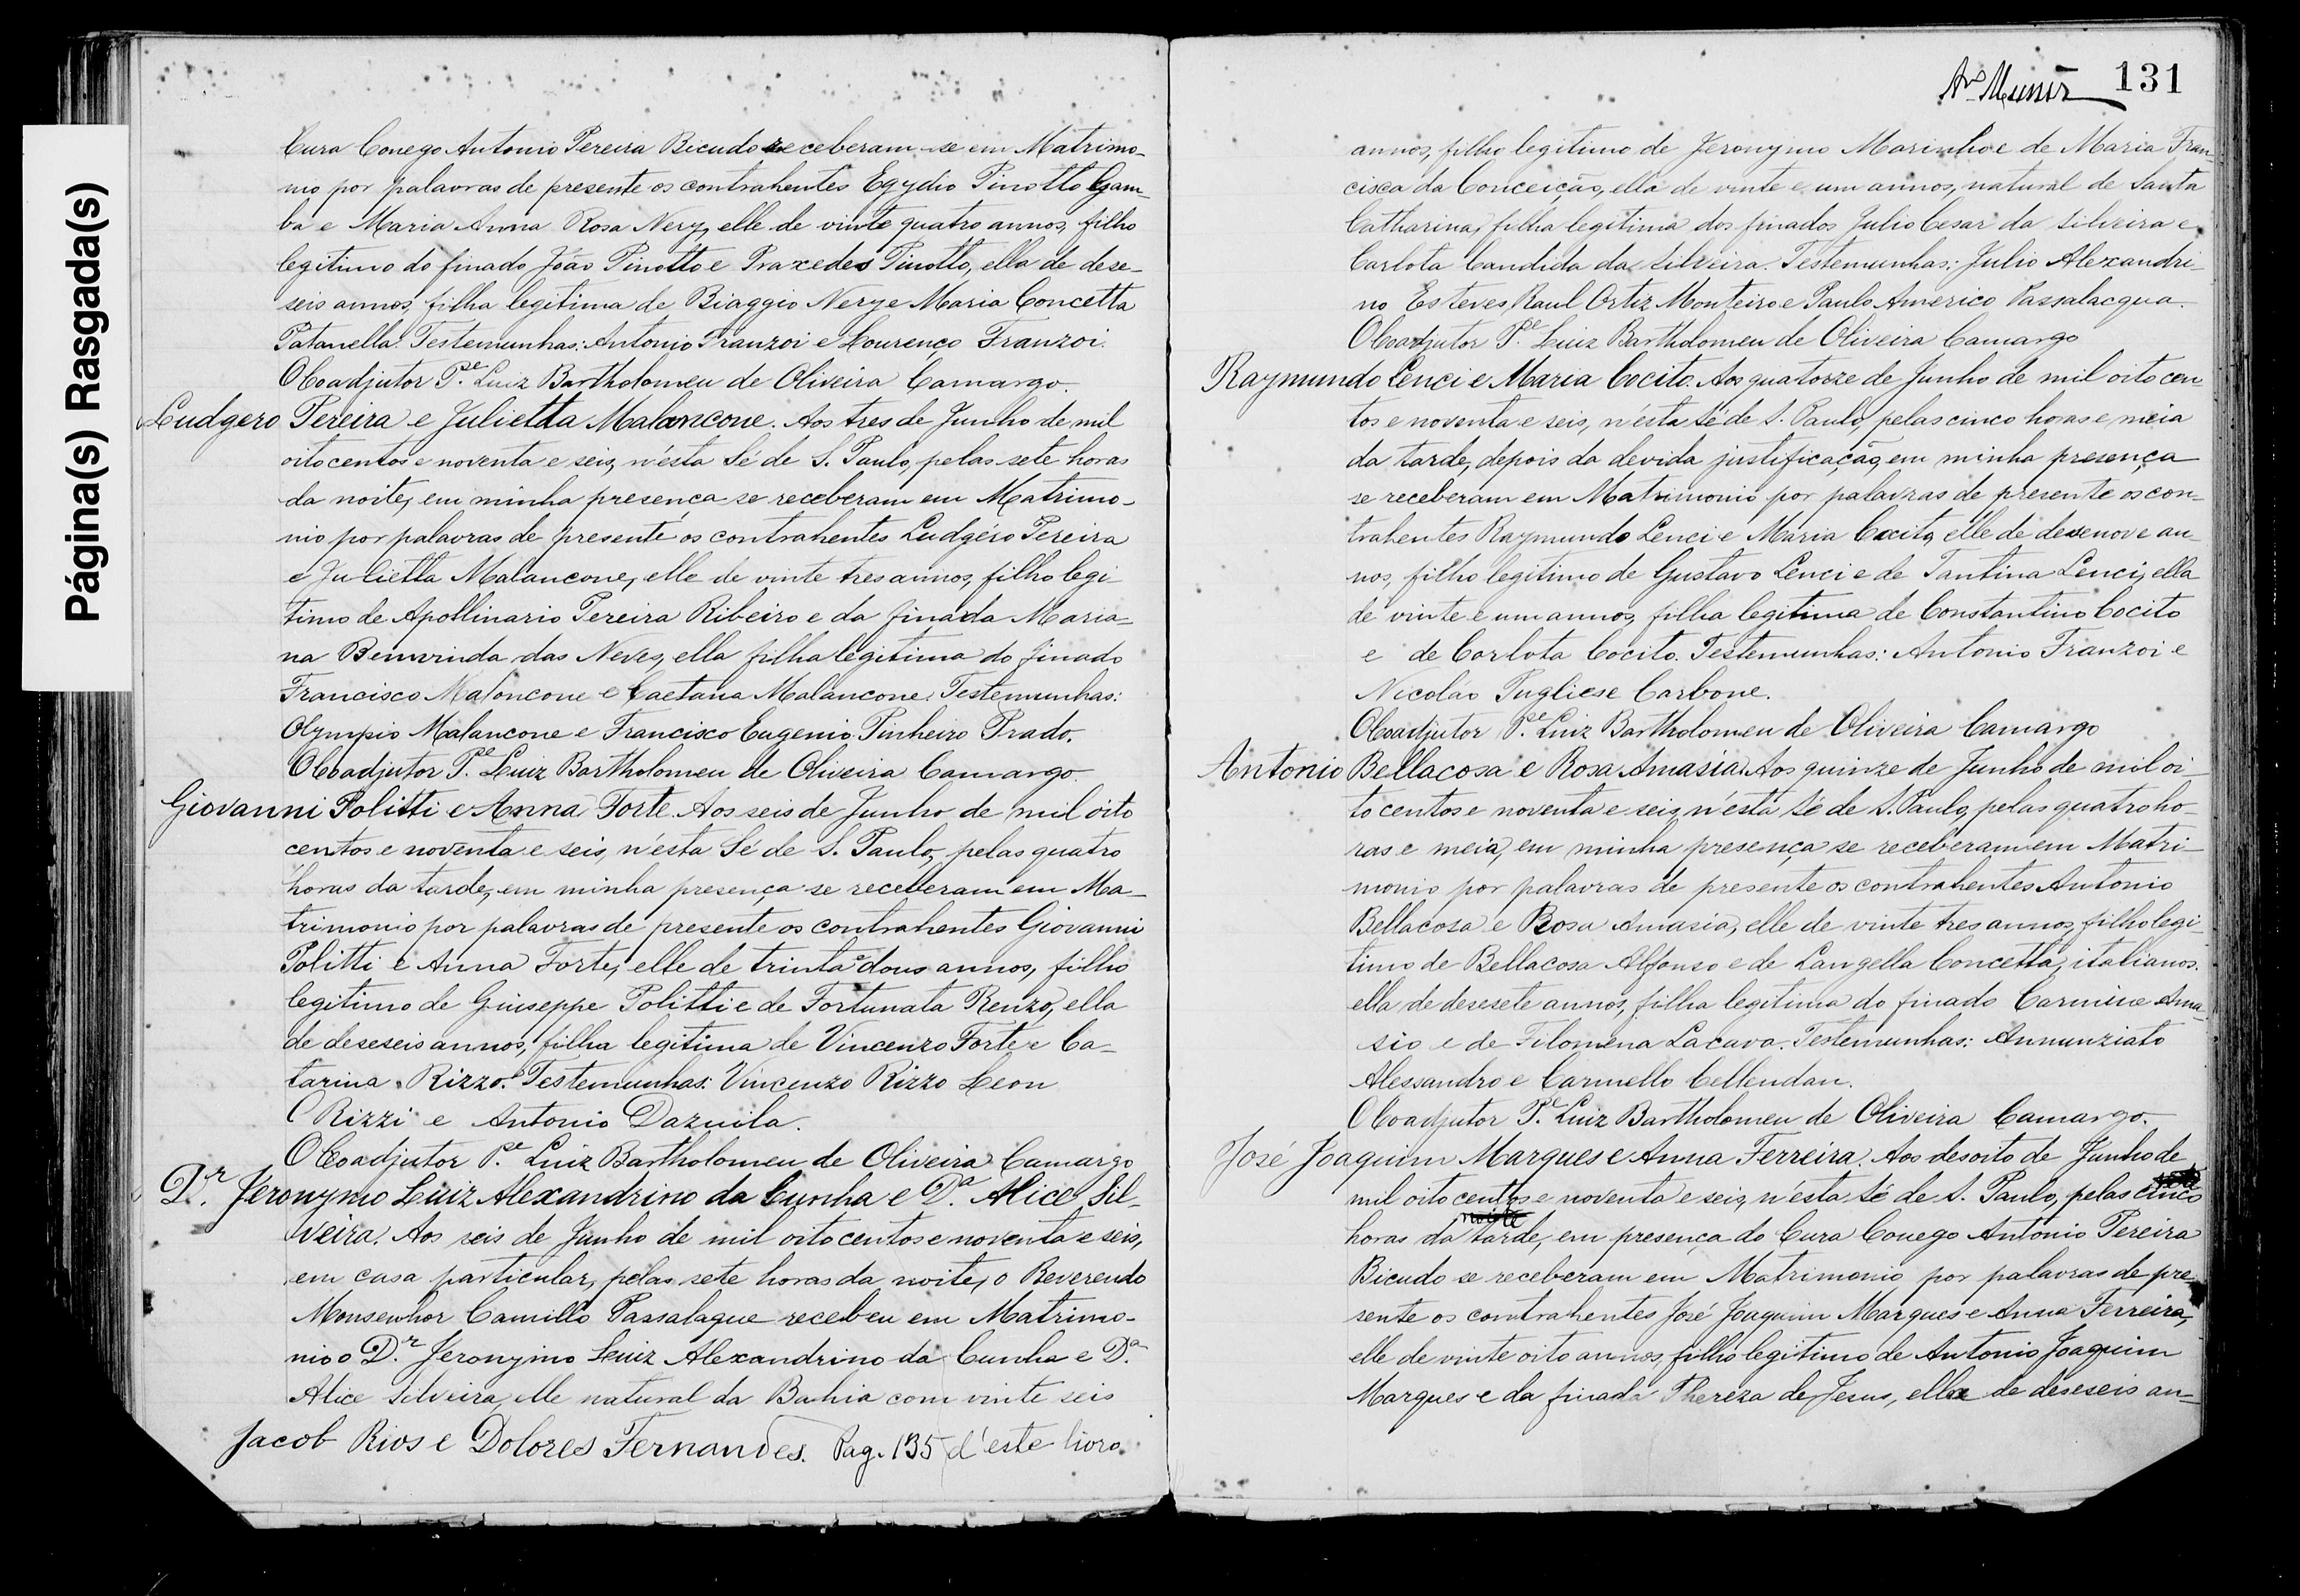 Página(s) Rasgada(s)
Cura Conego Antonio Pereira Bicudo receberam-se em Matrimo-
nio por palavras de presente os contrahentes Egydio Pinotto Gam-
ba e Maria Anna Rosa Nery, elle de vinte quatro annos, filho
legitimo do finado João Pinotto e Praxedes Pinotto, ella de dese-
seis annos, filha legitima de Biaggio Nery e Maria Concetta
Patanella. Testemunhas: Antonio Franzoi e Lourenço Franzoi.
O Coadjutor Pe. Luiz Bartholomeu de Oliveira Camargo.
Ludgero Pereira e Julietta Malancone. Aos tres de Junho de mil
oito centos e noventa e seis, n'esta Sé de S. Paulo, pelas sete horas
da noite, em minha presença se receberam em Matrimo-
nio por palavras de presente os contrahentes Ludgéro Pereira
e Julietta Malancone, elle de vinte tres annos, filho legi-
timo de Apollinario Pereira Ribeiro e da finada Maria-
na Bemvinda das Neves, ella filha legitima do finado
Francisco Maloncone e Caetana Malancone. Testemunhas:
Olympio Malancone e Francisco Eugenio Pinheiro Prado.
O Coadjutor Pe. Luiz Bartholomeu de Oliveira Camargo.
Giovanni Politti e Anna Forte. Aos seis de Junho de mil oito
centos e noventa e seis, n'esta Sé de S. Paulo, pelas quatro
horas da tarde, em minha presença se receberam em Ma-
trimonio por palavras de presente os contrahentes Giovanni
Politti e Anna Forte, elle de trinta e dous annos, filho
legitimo de Giuseppe Politti e de Fortunata Renzo, ella
de deseseis annos, filha legitima de Vincenzo Forte e Ca-
tarina Rizzo. Testemunhas: Vincenzo Rizzo Leon
Rizzi e Antonio Dazuila.
O Coadjutor Pe. Luiz Bartholomeu de Oliveira Camargo
Dr. Jeronymo Luiz Alexandrino da Cunha e Da. Alice Sil-
veira. Aos seis de Junho de mil oito centos e noventa e seis,
em casa particular, pelas sete horas da noite, o Reverendo
Monsenhor Camillo Passalaque recebeu em Matrimo-
nio o Dr. Jeronymo Luiz Alexandrino da Cunha e Da.
Alice Silveira, elle natural da Bahia com vinte seis
Jacob Rios e Dolores Fernandes. Pag. 135 d'este livro.
131
annos, filho legitimo de Jeronymo Marinho e de Maria Fran-
cisca da Conceição, ella de vinte e um annos, natural de Santa
Catharina, filha legitima dos finados Julio Cesar da Silveira e
Carlota Candida da Silveira. Testemunhas: Julio Alexandri-
no Esteves, Raul Ortiz Monteiro e Paulo Americo Passalacqua.
O Coadjutor Pe. Luiz Bartholomeu de Oliveira Camargo
Raymundo Lenci e Maria Cocito. Aos quatorze de Junho de mil oito cen-
tos e noventa e seis, n'esta Sé de S. Paulo, pelas cinco horas e meia
da tarde, depois da devida justificação, em minha presença
se receberam em Matrimonio por palavras de presente os con-
trahentes Raymundo Lenci e Maria Cocito, elle de desenove an-
nos, filho legitimo de Gustavo Lenci e de Tantina Lenci, ella
de vinte e um annos, filha legitima de Constantino Cocito
e de Carlota Cocito. Testemunhas: Antonio Franzoi e
Nicoláo Pugliese Carbone.
O Coadjutor Pe. Luiz Bartholomeu de Oliveira Camargo
Antonio Bellacosa e Rosa Amasia. Aos quinze de Junho de mil oi-
to centos e noventa e seis, n'esta Sé de S. Paulo, pelas quatro ho-
ras e meia, em minha presença se receberam em Matri-
monio por palavras de presente os contrahentes Antonio
Bellacosa e Rosa Amasia, elle de vinte tres annos, filho legi-
timo de Bellacosa Alfonso e de Langella Concetta, italianos.
ella de desesete annos, filha legitima do finado Carmine Ama-
sio e de Filomena Lacava. Testemunhas: Annunziato
Alessandro e Carmello Cellendan.
O Coadjutor Pe. Luiz Bartholomeu de Oliveira Camargo.
José Joaquim Marques e Anna Ferreira. Aos desoito de Junho de
mil oito centos e noventa e seis, n'esta Sé de S. Paulo, pelas cinco
horas da tarde, em presença do Cura Conego Antonio Pereira
Bicudo se receberam em Matrimonio por palavras de pre-
sente os contrahentes José Joaquim Marques e Anna Ferreira,
elle de vinte oito annos, filho legitimo de Antonio Joaquim
Marques e da finada Thereza de Jesus, ella de deseseis an-